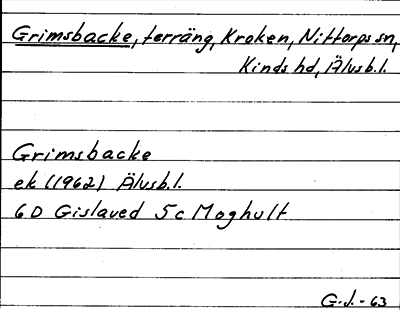 Grimsbacke, terräng, Kroken, Nittorps sn,
Kinds hd, Älvsb.l.
Grimsbacke
ek (1962) Älvsb.l.
6D Gislaved 5c Moghult
G.J.-63